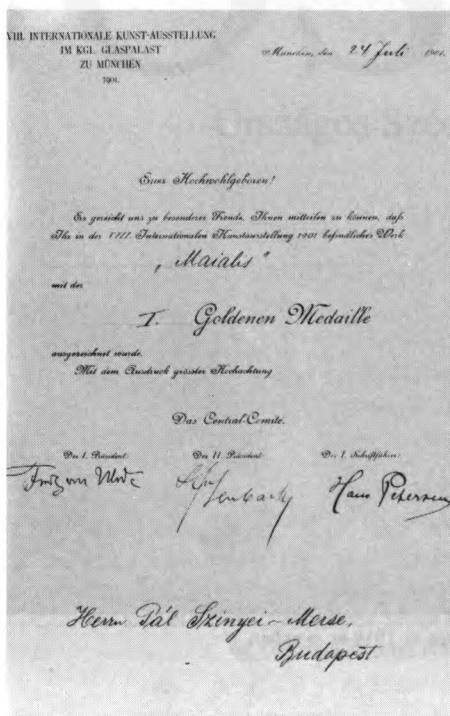 VIII. INTERNATIONALE KUNST-AUSSTELLUNG
IM KGL. GLASPALAST
ZU MÜNCHEN
1901.
München, den 24 Juli 1901.
Euer Hochwohlgeboren!
Es gereicht uns zu besonderer Freude, Ihnen mitteilen zu können, daß
Ihr in der VIII. Internationalen Kunstausstellung 1901 befindliches Werk
„Maialis"
mit der
I. Goldenen Medaille
ausgezeichnet wurde.
Mit dem Ausdruck grösster Hochachtung
Das Central-Comité.
Der I. Präsident: Der II. Präsident: Der I. Schriftführer:
Fritz von Uhde Lenbach Hans Petersen
Herrn Pál Szinyei-Merse,
Budapest